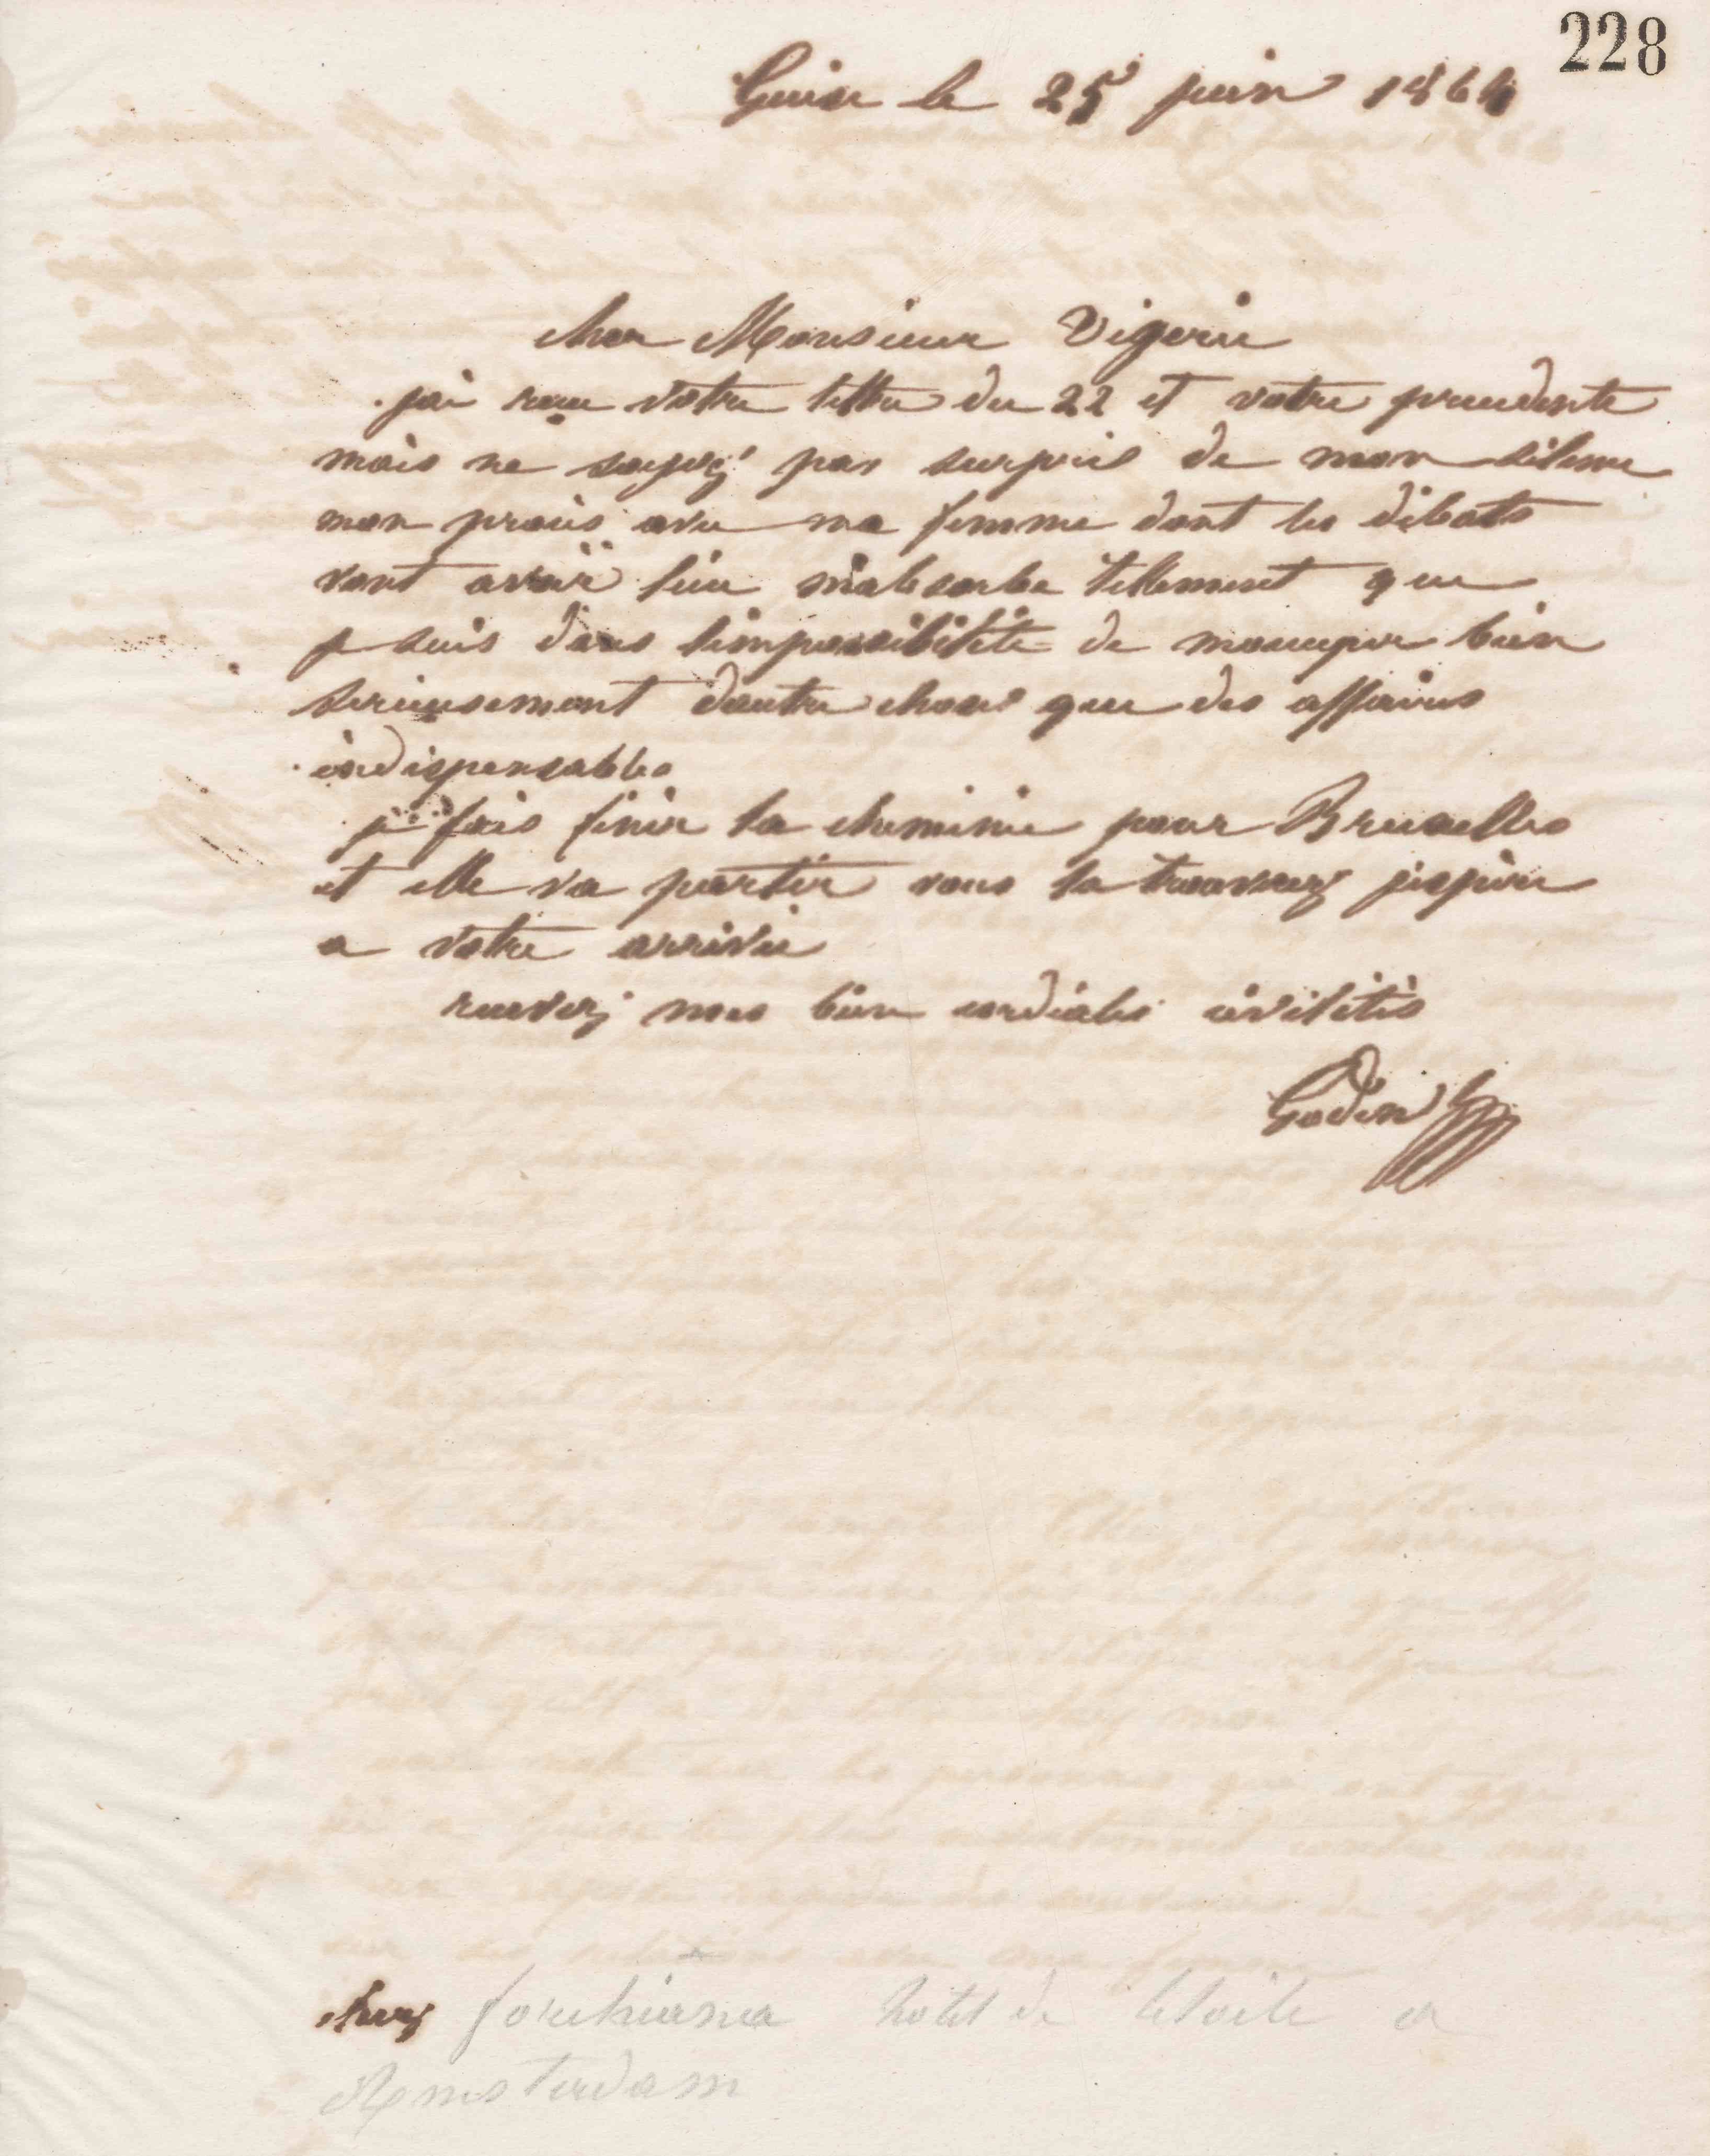 228
Guise le 25 juin 1864
cher Monsieur Vigerie
jai reçu votre lettre du 22 et votre precedente
mais ne soyez pas surpris de mon silence
mon procès avec ma femme dont les débats
vont avoir lieu m'absorbe tellement que
je suis dans limpossibilité de moccuper bien
serieusement dautre chose que des affaires
indispensables
je fais finir la cheminée pour Bruxelles
et elle va partir vous la trouverez jespère
a votre arrivée
recevez mes bien cordiales civilités
Godin
chez hotel de letoile a
Amsterdam